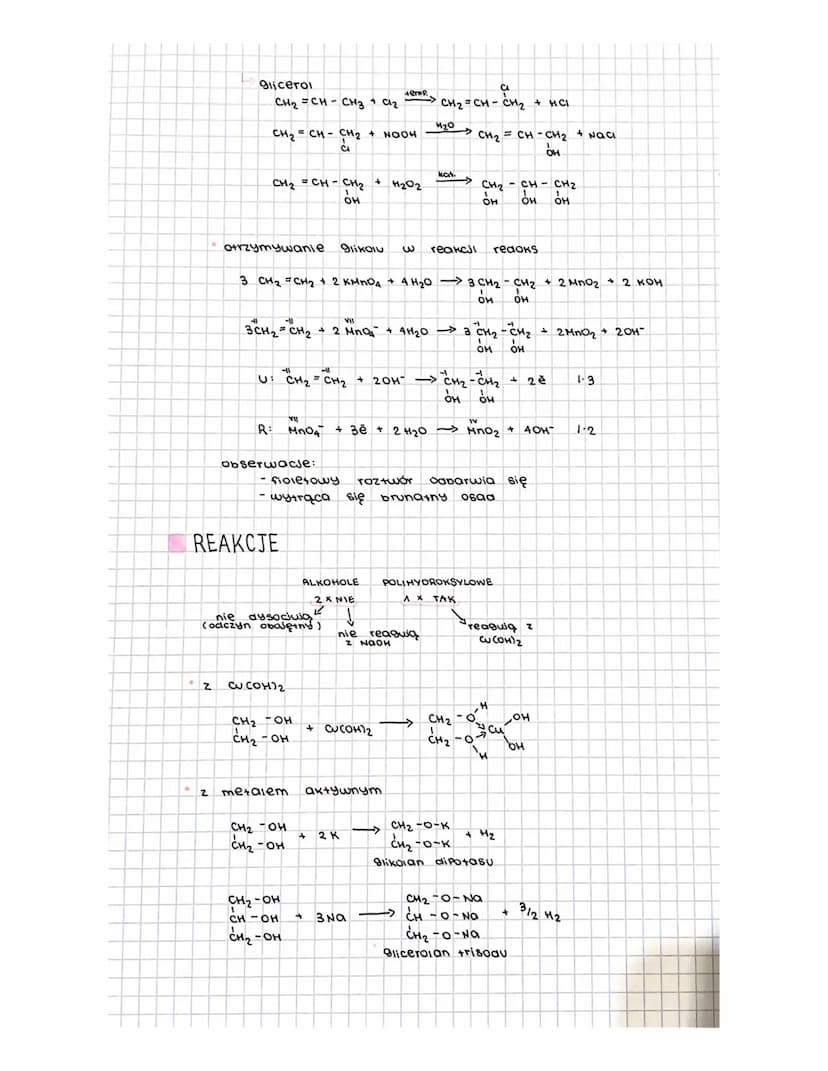 ↳ glicerol
CH₂ = CH - CH₃ + Cl₂ —temp.→ CH₂ = CH - CH₂ + HCl
Cl
CH₂ = CH - CH₂ + NaOH —H₂O→ CH₂ = CH - CH₂ + NaCl
Cl OH
CH₂ = CH - CH₂ + H₂O₂ —kat.→ CH₂ - CH - CH₂
OH OH OH OH
• otrzymywanie glikolu w reakcji redoks
3 CH₂ = CH₂ + 2 KMnO₄ + 4 H₂O → 3 CH₂ - CH₂ + 2 MnO₂ + 2 KOH
OH OH
-II -II VII -I -I
3CH₂ = CH₂ + 2 MnO₄⁻ + 4H₂O → 3 CH₂ - CH₂ + 2MnO₂ + 2OH⁻
OH OH
-II -II -I -I
U: CH₂ = CH₂ + 2OH⁻ → CH₂ - CH₂ + 2ē 1·3
OH OH
VII IV
R: MnO₄⁻ + 3ē + 2 H₂O → MnO₂ + 4OH⁻ 1·2
obserwacje:
- fioletowy roztwór odbarwia się
- wytrąca się brunatny osad
REAKCJE
ALKOHOLE POLIHYDROKSYLOWE
2 x NIE 1 x TAK
nie dysocjują
(odczyn obojętny)
nie reagują
z NaOH
reagują z
Cu(OH)₂
• z Cu(OH)₂
H
CH₂ - OH CH₂ - O OH
+ Cu(OH)₂ → Cu
CH₂ - OH CH₂ - O OH
H
• z metalem aktywnym
CH₂ - OH CH₂ - O - K
+ 2 K → + H₂
CH₂ - OH CH₂ - O - K
glikolan dipotasu
CH₂ - OH CH₂ - O - Na
CH - OH + 3 Na → CH - O - Na + 3/2 H₂
CH₂ - OH CH₂ - O - Na
glicerolan trisodu